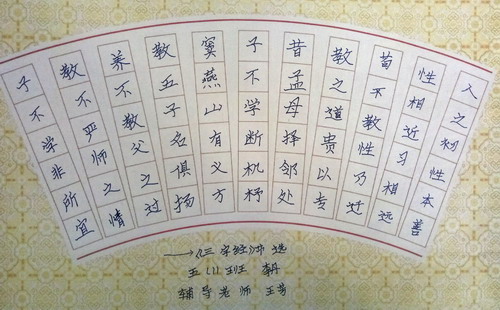 人之初性本善
性相近习相远
苟不教性乃迁
教之道贵以专
昔孟母择邻处
子不学断机杼
窦燕山有义方
教五子名俱扬
养不教父之过
教不严师之情
子不学非所宜
——《三字经》节选
五(1)班 李丹
辅导老师 王芳